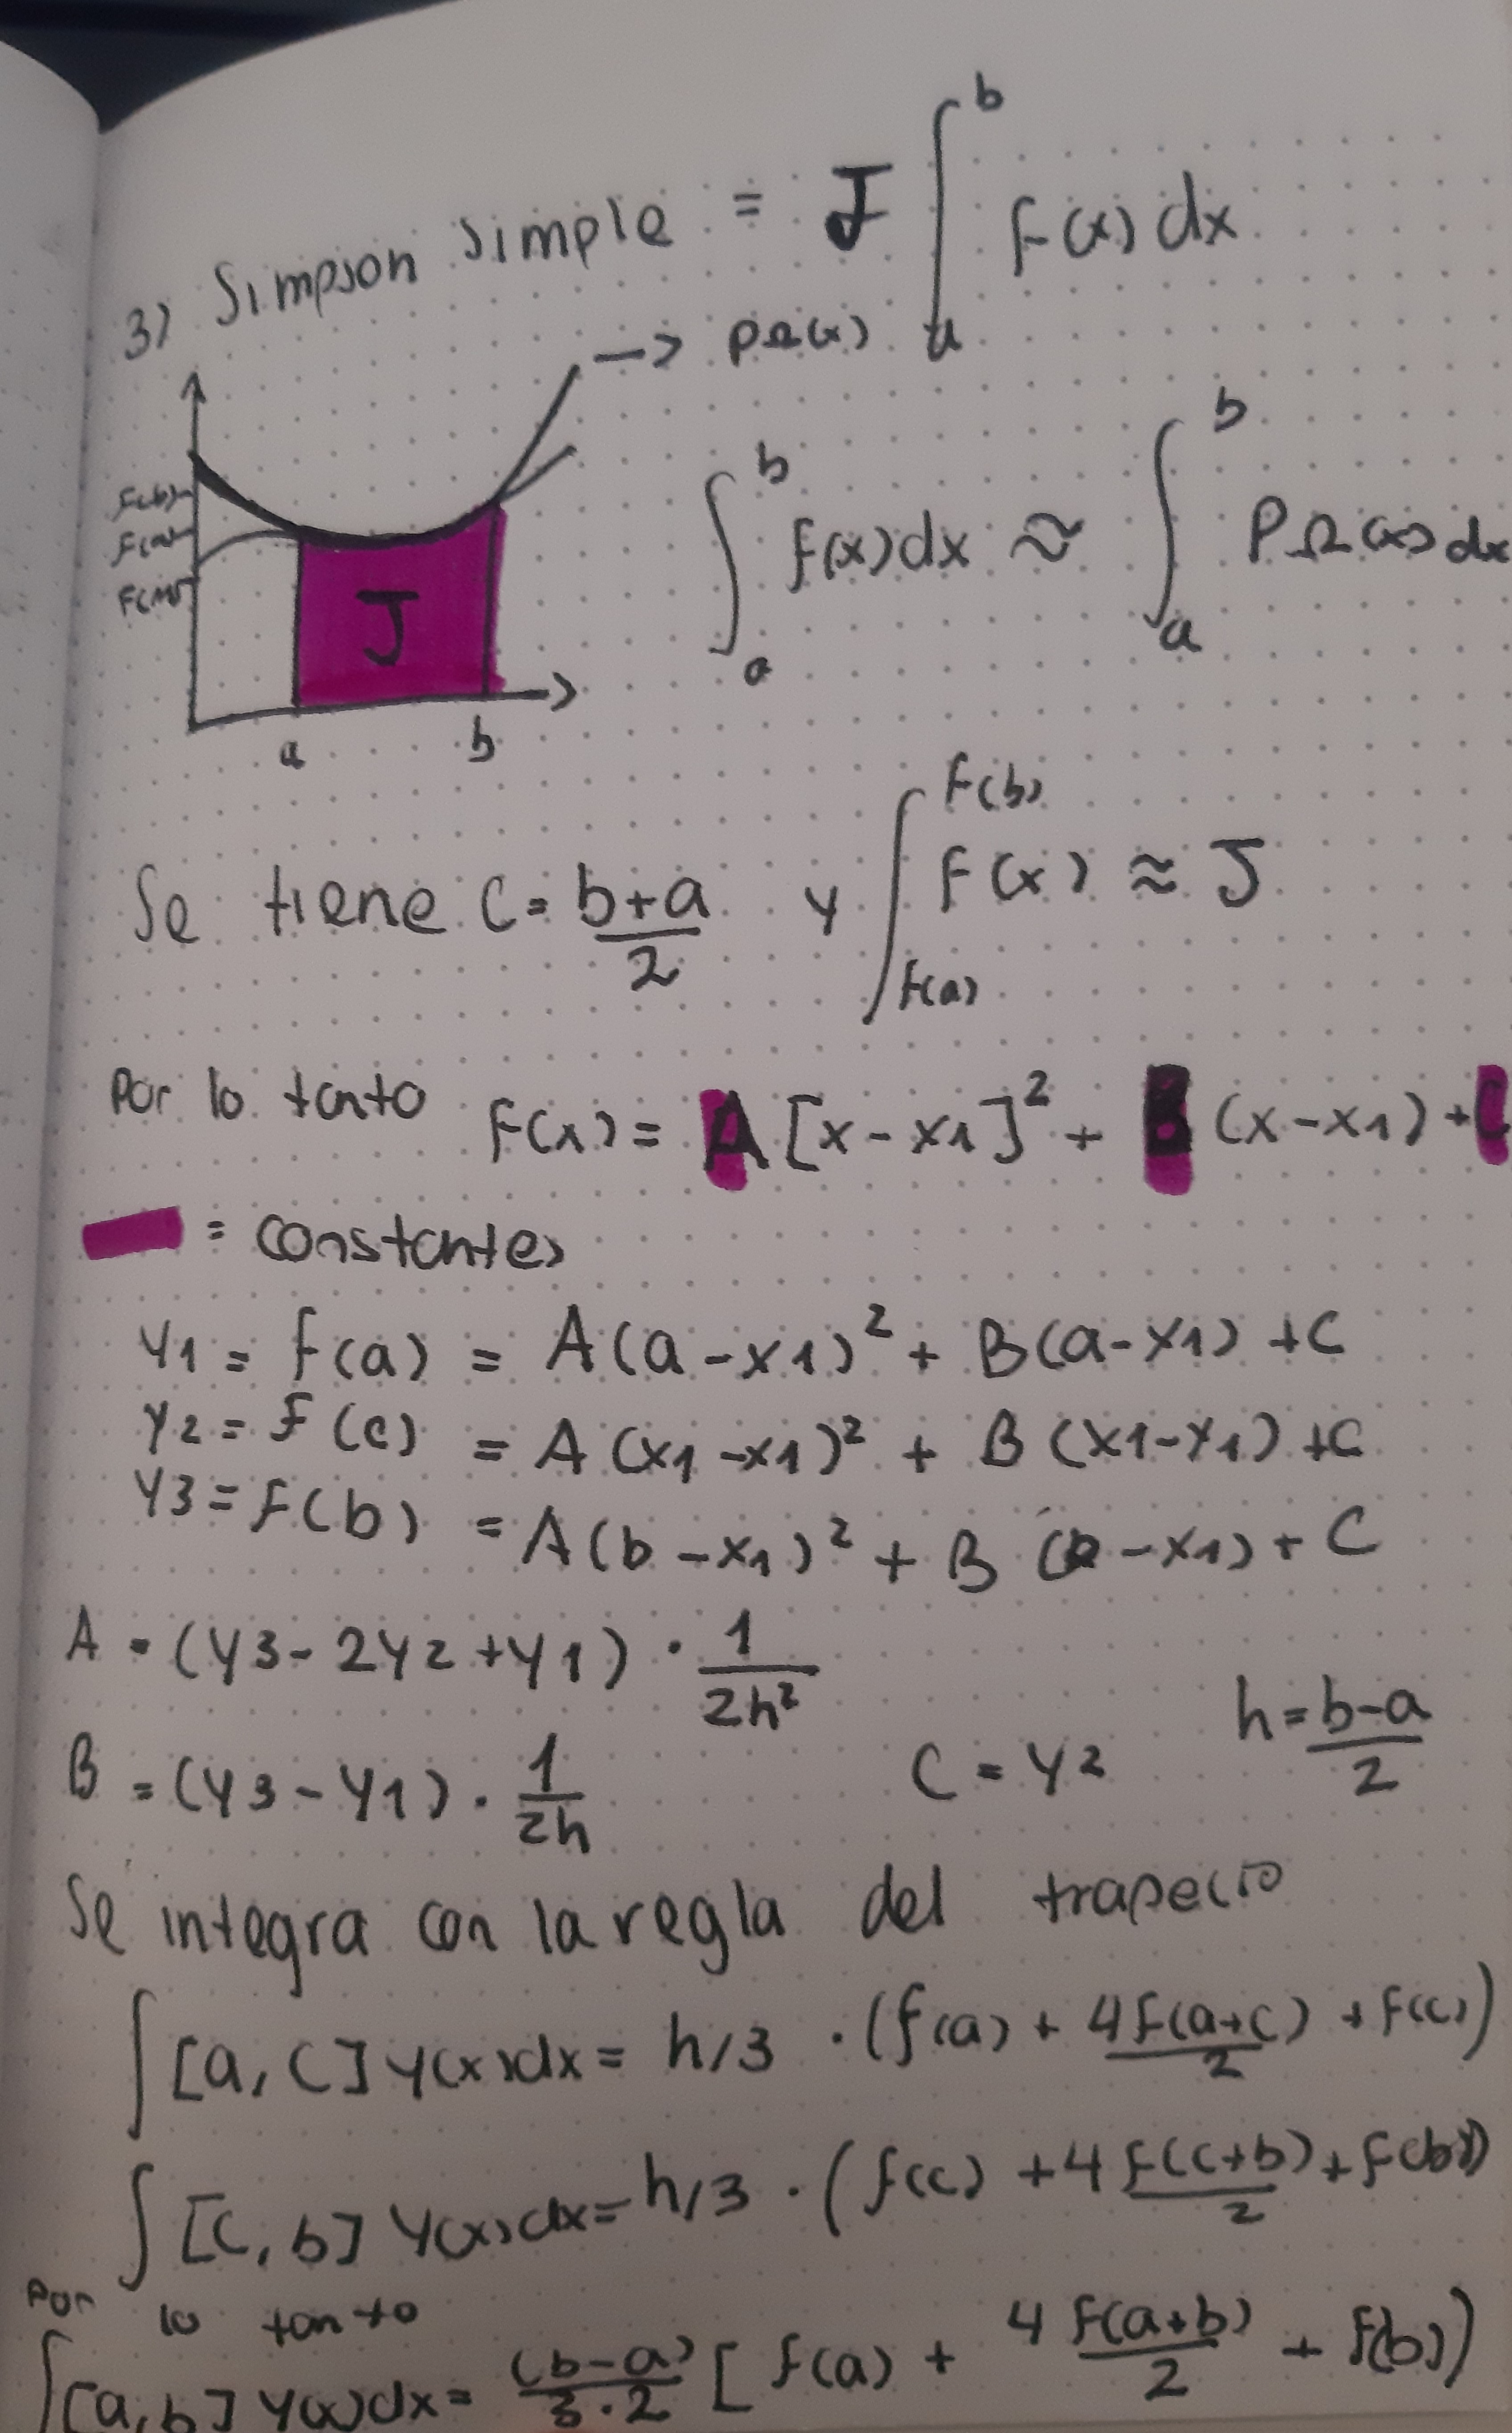 3) Simpson Simple = J ∫ₐᵇ F(x) dx
—> PΩ(x)
F(b)
F(a)
F(m)
J
a b
∫ₐᵇ f(x)dx ≈ ∫ₐᵇ PΩ(x) dx
Se tiene C = (b+a)/2 y ∫ F(a) F(b) F(x) ≈ J
Por lo tanto F(x) = A [x - x1]² + B (x - x1) + C
= constantes
Y1 = f(a) = A(a - x1)² + B(a - x1) + C
Y2 = F(c) = A(x1 - x1)² + B(x1 - x1) + C
Y3 = F(b) = A(b - x1)² + B ( - x1) + C
A = (Y3 - 2Y2 + Y1) · 1/2h²
B = (Y3 - Y1) · 1/2h C = Y2 h = (b-a)/2
Se integra con la regla del trapecio
∫ [a, C] Y(x)dx = h/3 · (f(a) + 4F(a+c)/2 + F(c))
∫ [C, b] Y(x)dx = h/3 · (f(c) + 4F(c+b)/2 + F(b))
Por lo tanto
∫ [a, b] Y(x)dx = (b-a)/3·2 [ f(a) + 4 F(a+b)/2 + F(b))